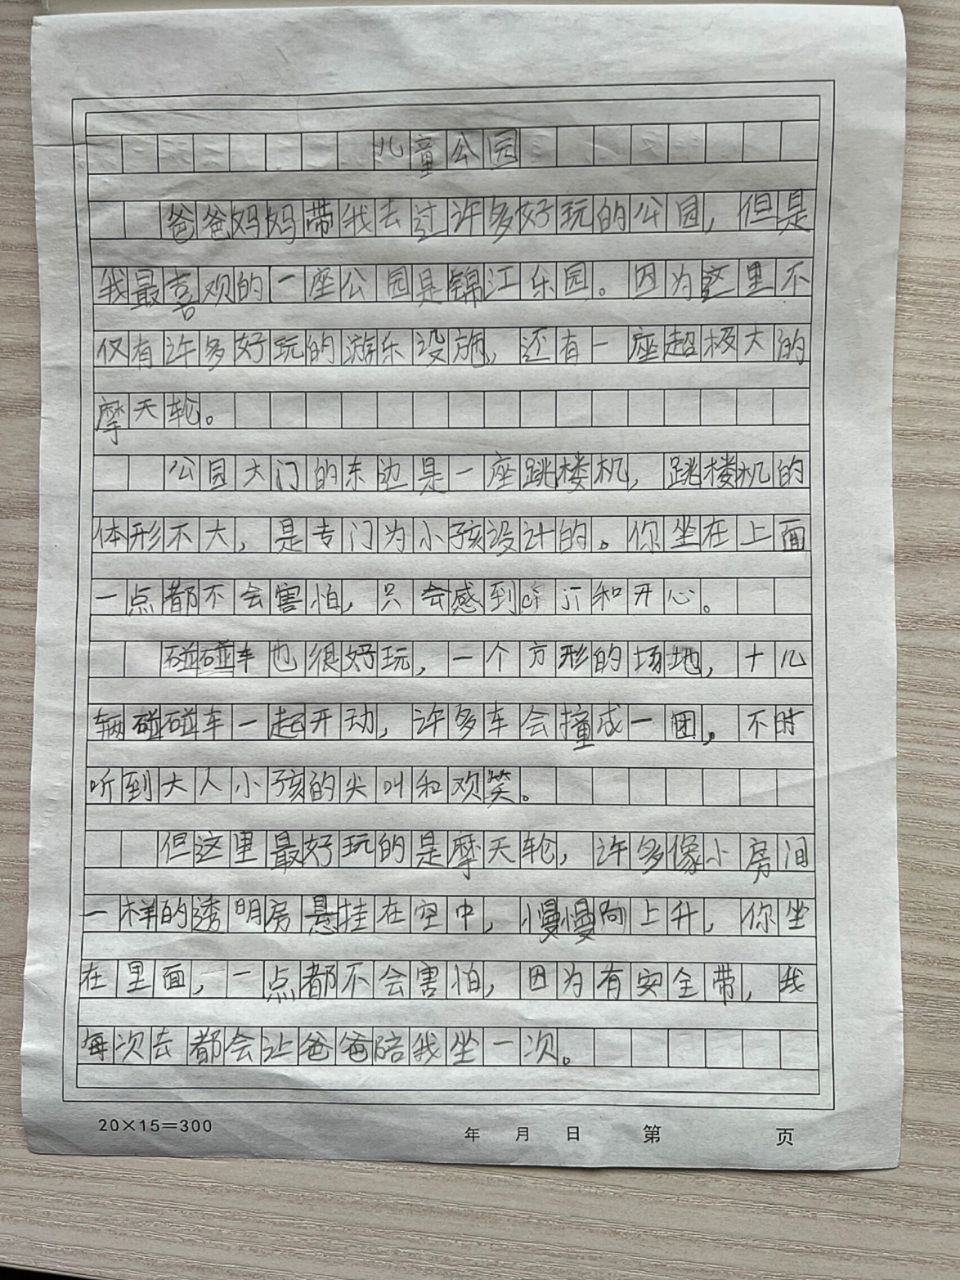 儿童公园
爸爸妈妈带我去过许多好玩的公园，但是
我最喜欢的一座公园是锦江乐园。因为这里不
仅有许多好玩的游乐设施，还有一座超极大的
摩天轮。
公园大门的东边是一座跳楼机，跳楼机的
体形不大，是专门为小孩设计的。你坐在上面
一点都不会害怕，只会感到 和开心。
碰碰车也很好玩，一个方形的场地，十几
辆碰碰车一起开动，许多车会撞成一团，不时
听到大人小孩的尖叫和欢笑。
但这里最好玩的是摩天轮，许多像小房间
一样的透明房悬挂在空中，慢慢向上升，你坐
在里面，一点都不会害怕，因为有安全带，我
每次去都会让爸爸陪我坐一次。
20×15=300
年 月 日 第 页